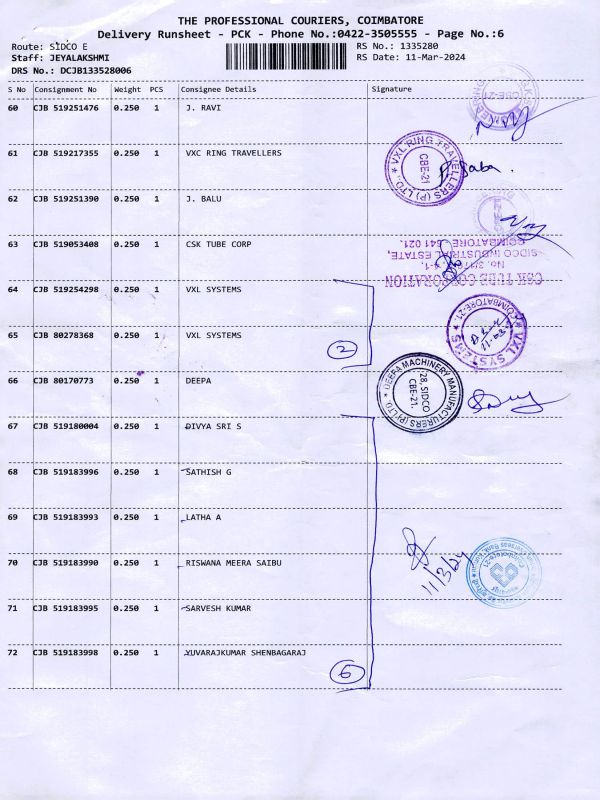 THE PROFESSIONAL COURIERS, COIMBATORE
Delivery Runsheet - PCK - Phone No.:0422-3505555 - Page No.:6
Route: SIDCO E
RS No.: 1335280
Staff: JEYALAKSHMI
RS Date: 11-Mar-2024
DRS No.: DCJB133528006
S No Consignment No Weight PCS Consignee Details Signature
60 CJB 519251476 0.250 1 J. RAVI
CBE-21
61 CJB 519217355 0.250 1 VXC RING TRAVELLERS
* VXL RING TRAVELLERS (P) LTD.,
CBE-21
62 CJB 519251390 0.250 1 J. BALU
63 CJB 519053408 0.250 1 CSK TUBE CORP
CSK TUBE CORPORATION
SIDCO INDUSTRIAL ESTATE,
COIMBATORE - 641 021.
64 CJB 519254298 0.250 1 VXL SYSTEMS
65 CJB 80278368 0.250 1 VXL SYSTEMS
2
* VXL SYSTEMS * COIMBATORE-21.
66 CJB 80170773 0.250 1 DEEPA
* DEEPA MACHINERY MANUFACTURERS (P) LTD.
28, SIDCO
CBE-21.
67 CJB 519180004 0.250 1 DIVYA SRI S
68 CJB 519183996 0.250 1 SATHISH G
69 CJB 519183993 0.250 1 LATHA A
70 CJB 519183990 0.250 1 RISWANA MEERA SAIBU
11/3/24
71 CJB 519183995 0.250 1 SARVESH KUMAR
72 CJB 519183998 0.250 1 YUVARAJKUMAR SHENBAGARAJ
6